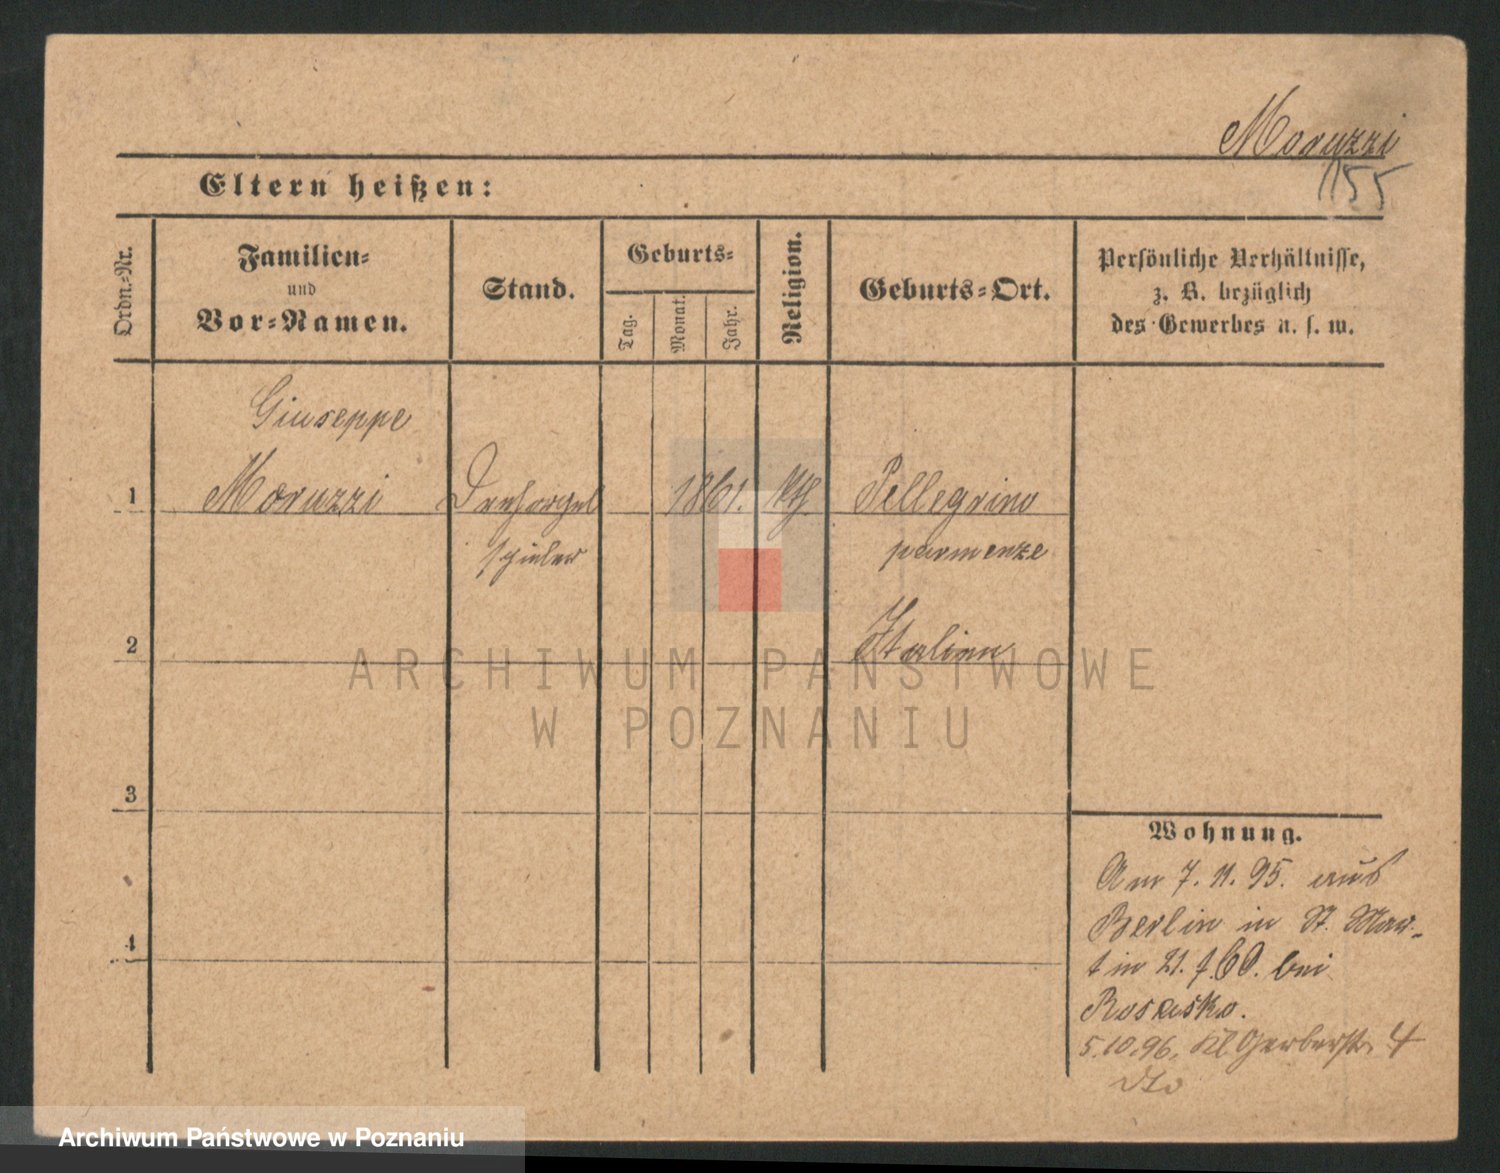 Moruzzi
155
Eltern heißen:
Ordn.-Nr.
Familien-
und
Vor-Namen.
Stand.
Geburts-
Tag.
Monat.
Jahr.
Religion.
Geburts-Ort.
Persönliche Verhältnisse,
z. B. bezüglich
des Gewerbes u. s. w.
Giuseppe
1 Moruzzi Drehorgel 1861. kth. Pellegrino
spieler parmenze
2 Italien
ARCHIWUM PAŃSTWOWE
W POZNANIU
3
Wohnung.
Am 7. 11. 95. aus
Berlin in St. Mar-
4
tin 21. f. 60. bei
Roszesko.
5.10.96. Kl Gerberstr. 4
dto
Archiwum Państwowe w Poznaniu